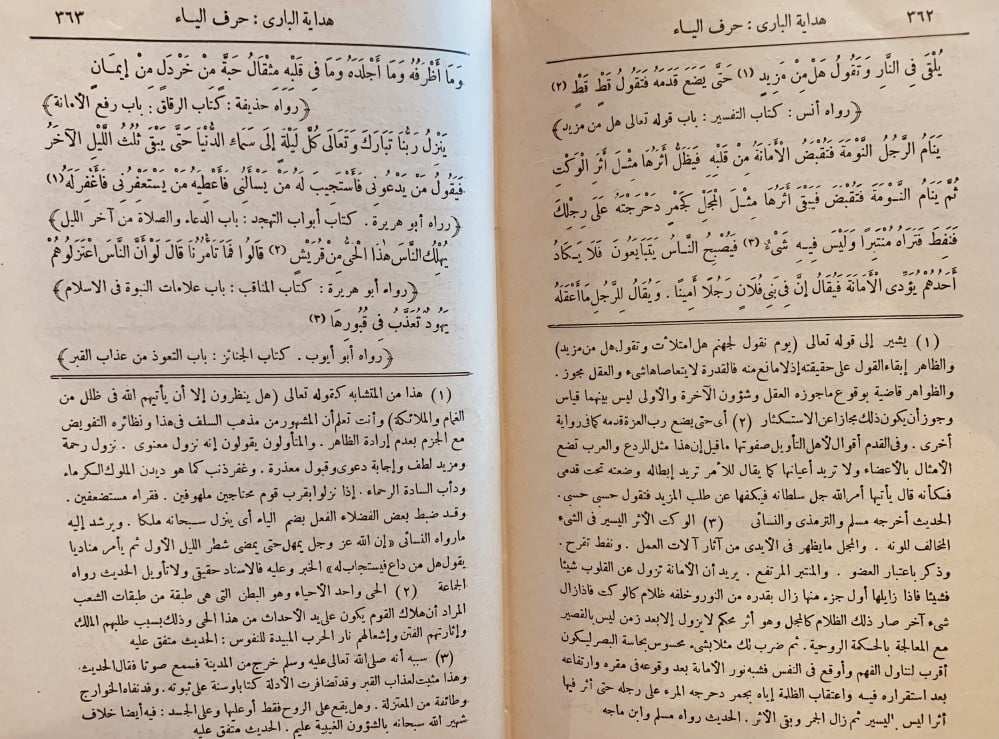 ٣٦٢
هداية البارى : حرف اليـاء
يُلْقَى فِى النَّارِ وَتَقُولُ هَلْ مِنْ مَزِيدٍ (١) حَتَّى يَضَعَ قَدَمَهُ فَتَقُولُ قَطْ قَطْ (٢)
﴿رواه أنس : كتاب التفسير : باب قوله تعالى هل من مزيد﴾
يَنَامُ الرَّجُلُ النَّوْمَةَ فَتُقْبَضُ الأَمَانَةُ مِنْ قَلْبِهِ فَيَظَلُّ أَثَرُهَا مِثْـلَ أَثَرِ الْوَكْتِ
ثُمَّ يَنَامُ النَّـوْمَةَ فَتُقْبَضُ فَيَبْقَى أَثَرُهَا مِثْـلَ الْمَجْلِ كَجَمْرٍ دَحْرَجْتَهُ عَلَى رِجْلِكَ
فَنَفِطَ فَتَرَاهُ مُنْتَبِرًا وَلَيْسَ فِيـهِ شَىْءٌ (٣) فَيُصْبِحُ النَّـاسُ يَتَبَايَعُونَ فَلَا يَـكَادُ
أَحَدُهُمْ يُؤَدِّى الْأَمَانَةَ فَيُقَالُ إِنَّ فِى بَنِى فُلَانٍ رَجُلًا أَمِينًا . وَيُقَالُ لِلرَّجُلِ مَا أَعْقَلَهُ
(١) يشير إلى قوله تعالى (يوم نقول لجهنم هل امتلأت وتقول هل من مزيد)
والظاهر إبقاء القول على حقيقته إذلامانع منه فالقدرة لايتعاصاها شىء والعقل مجوز .
والظواهر قاضية بوقوع ماجوزه العقل وشؤون الآخرة والأولى ليس بينهما قياس
وجوز أن يكون ذلك مجازا عن الاستكثار (٢) أى حتى يضع رب العزة قدمه كما فى رواية
أخرى . وفى القدم أقوال لأهل التأويل صفوتها ماقيل إن هذا مثل للردع والعرب تضع
الأمثال بالأعضاء ولا تريد أعيانها كما يقال للأمر تريد إبطاله وضعته تحت قدمى
فكأنه قال يأتيها أمر الله جل سلطانه فيكفها عن طلب المزيد فتقول حسبى حسبى .
الحديث أخرجه مسلم والترمذى والنسائى (٣) الوكت الأثر اليسير فى الشىء
المخالف للونه . والمجل مايظهر فى الأيدى من آثار آلات العمل . ونفط تقرح .
وذكر باعتبار العضو . والمنتبر المرتفع . يريد أن الأمانة تزول عن القلوب شيئا
فشيئا فاذا زايلها أول جزء منها زال بقدره من النور وخلفه ظلام كالوكت فاذا زال
شىء آخر صار ذلك الظلام كالمجل وهو أثر محكم لا يزول إلا بعد زمن ليس بالقصير
مع المعالجة بالحكمة الروحية . ثم ضرب لك مثلا بشىء محسوس بحاسة البصر ليكون
أقرب لتناول الفهم وأوقع فى النفس فشبه نور الأمانة بعد وقوعه فى مقره وارتفاعه
بعد استقراره فيـه واعتقاب الظلمة إياه بجمر دحرجه المرء على رجله حتى أثر فيها
أثرا ليس باليسير ثم زال الجمر وبقى الأثر . الحديث رواه مسلم وابن ماجه
هداية البارى : حرف اليـاء
٣٦٣
وَمَا أَظْرَفَهُ وَمَا أَجْلَدَهُ وَمَا فِى قَلْبِهِ مِثْقَالُ حَبَّةٍ مِنْ خَرْدَلٍ مِنْ إِيمَانٍ
﴿رواه حذيفة : كتاب الرقاق : باب رفع الأمانة﴾
يَنْزِلُ رَبُّنَا تَبَارَكَ وَتَعَالَى كُلَّ لَيْلَةٍ إِلَى سَمَاءِ الدُّنْيَا حَتَّى يَبْقَى ثُلُثُ اللَّيْلِ الآخَرُ
فَيَقُولُ مَنْ يَدْعُونِى فَأَسْتَجِيبَ لَهُ مَنْ يَسْأَلُنِى فَأُعْطِيَهُ مَنْ يَسْتَغْفِرُنِى فَأَغْفِرَ لَهُ (١)
﴿رواه أبو هريرة . كتاب أبواب التهجد : باب الدعاء والصلاة من آخر الليل﴾
يُهْلِكُ النَّاسَ هٰذَا الْحَىُّ مِنْ قُرَيْشٍ (٢) قَالُوا فَمَا تَأْمُرُنَا قَالَ لَوْ أَنَّ النَّاسَ اعْتَزَلُوهُمْ
﴿رواه أبو هريرة : كتاب المناقب : باب علامات النبوة فى الاسلام﴾
يَهُودُ تُعَذَّبُ فِى قُبُورِهَا (٣)
﴿رواه أبو أيوب . كتاب الجنائز : باب التعوذ من عذاب القبر﴾
(١) هذا من المتشابه كقوله تعالى (هل ينظرون إلا أن يأتيهم الله فى ظلل من
الغمام والملائكة) وأنت تعلم أن المشهور من مذهب السلف فى هذا ونظائره التفويض
مع الجزم بعدم إرادة الظاهر . والمتأولون يقولون إنه نزول معنوى . نزول رحمة
ومزيد لطف وإجابة دعوى وقبول معذرة . وغفر ذنب كما هو ديدن الملوك الكرماء
ودأب السادة الرحماء . إذا نزلوا بقرب قوم محتاجين ملهوفين . فقراء مستضعفين .
وقـد ضبط بعض الفضلاء الفعل بضم الياء أى ينزل سبحانه ملكا . ويرشد إليه
مارواه النسائى «إن الله عز وجل يمهل حتى يمضى شطر الليل الأول ثم يأمر مناديا
يقول هل من داع فيستجاب له» الخبر وعليه فالاسناد حقيقى ولا تأويل الحديث رواه
الجماعة (٢) الحى واحد الأحياء وهو البطن التى هى طبقة من طبقات الشعب
المراد أن هلاك القوم يكون على يد الأحداث من هذا الحى وذلك بسبب طلبهم الملك
وإثارتهم الفتن وإشعالهم نار الحرب المبيدة للنفوس : الحديث متفق عليه
(٣) سببه أنه صلى الله تعالى عليه وسلم خرج من المدينة فسمع صوتا فقال الحديث .
وهذا مثبت لعذاب القبر وقد تضافرت الأدلة كتابا وسنة على ثبوته . وقد نفاه الخوارج
وطائفة من المعتزلة . وهل يقع على الروح فقط أو عليها وعلى الجسد : فيه أيضا خلاف
شهير الله سبحانه بالشؤون الغيبية عليم . الحديث متفق عليه